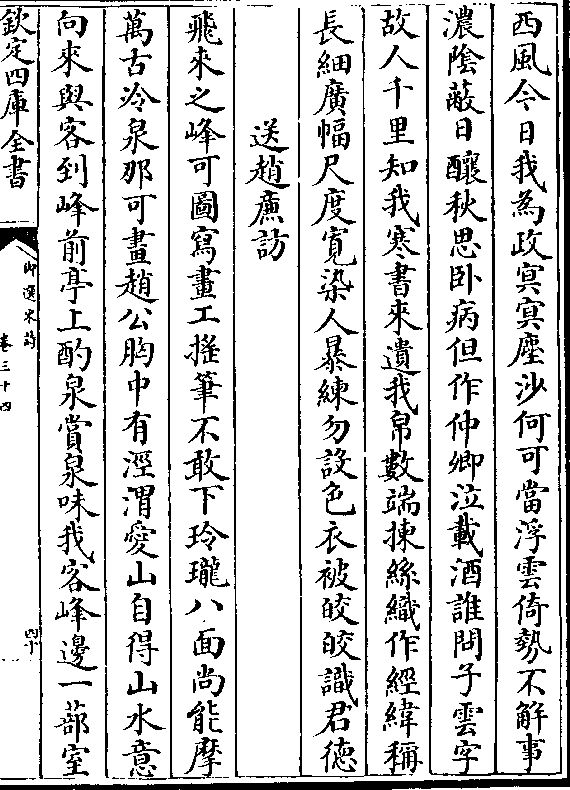 西風今日我為政冥冥塵沙何可當浮雲倚勢不解事
濃陰蔽日釀秋思卧病但作仲卿泣載酒誰問子雲字
故人千里知我寒書來遺我帛數端揀絲織作經緯稱
長細廣幅尺度寛染人暴練勿設色衣被皎皎識君徳
送趙廉訪
飛來之峰可圖寫畫工搖筆不敢下玲瓏八面尚能摩
萬古冷泉那可畫趙公胸中有涇渭愛山自得山水意
向來與客到峰前亭上酌泉賞泉味我客峰邊一蔀室
欽定四庫全書
御選宋詩
卷三十四
四十